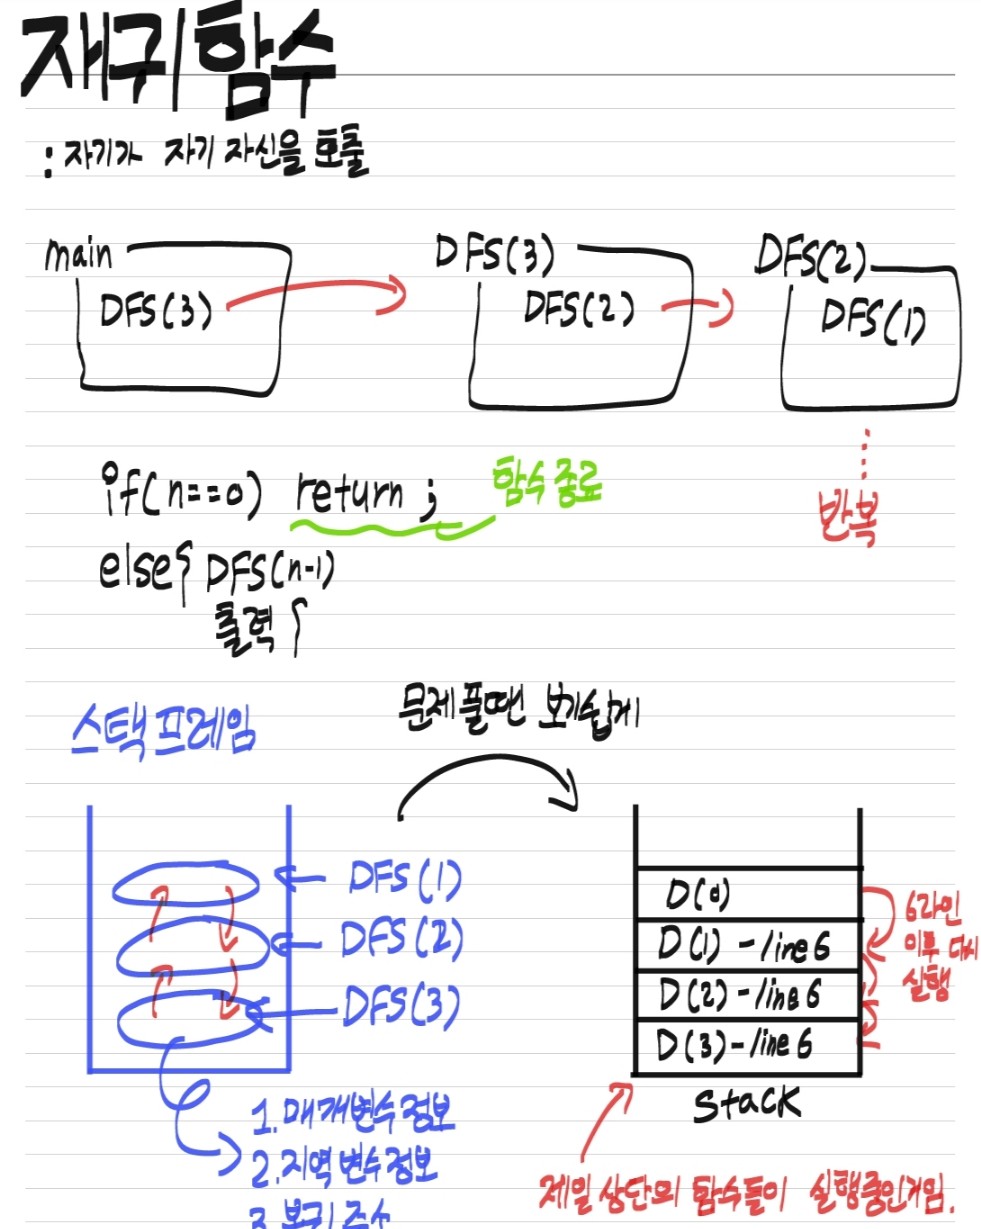 재귀함수
: 자기가 자기 자신을 호출
main
DFS(3)
DFS(3)
DFS(2)
DFS(2)
DFS(1)
⋮
반복
if(n==0) return ;
함수 종료
else{ DFS(n-1)
출력 }
스택 프레임
문제풀땐 보기쉽게
DFS(1)
DFS(2)
DFS(3)
1. 매개변수 정보
2. 지역 변수 정보
3. 복귀 주소
D(0)
D(1) - line 6
D(2) - line 6
D(3) - line 6
Stack
6라인
이후 다시
실행
제일 상단의 함수들이 실행중인거임.